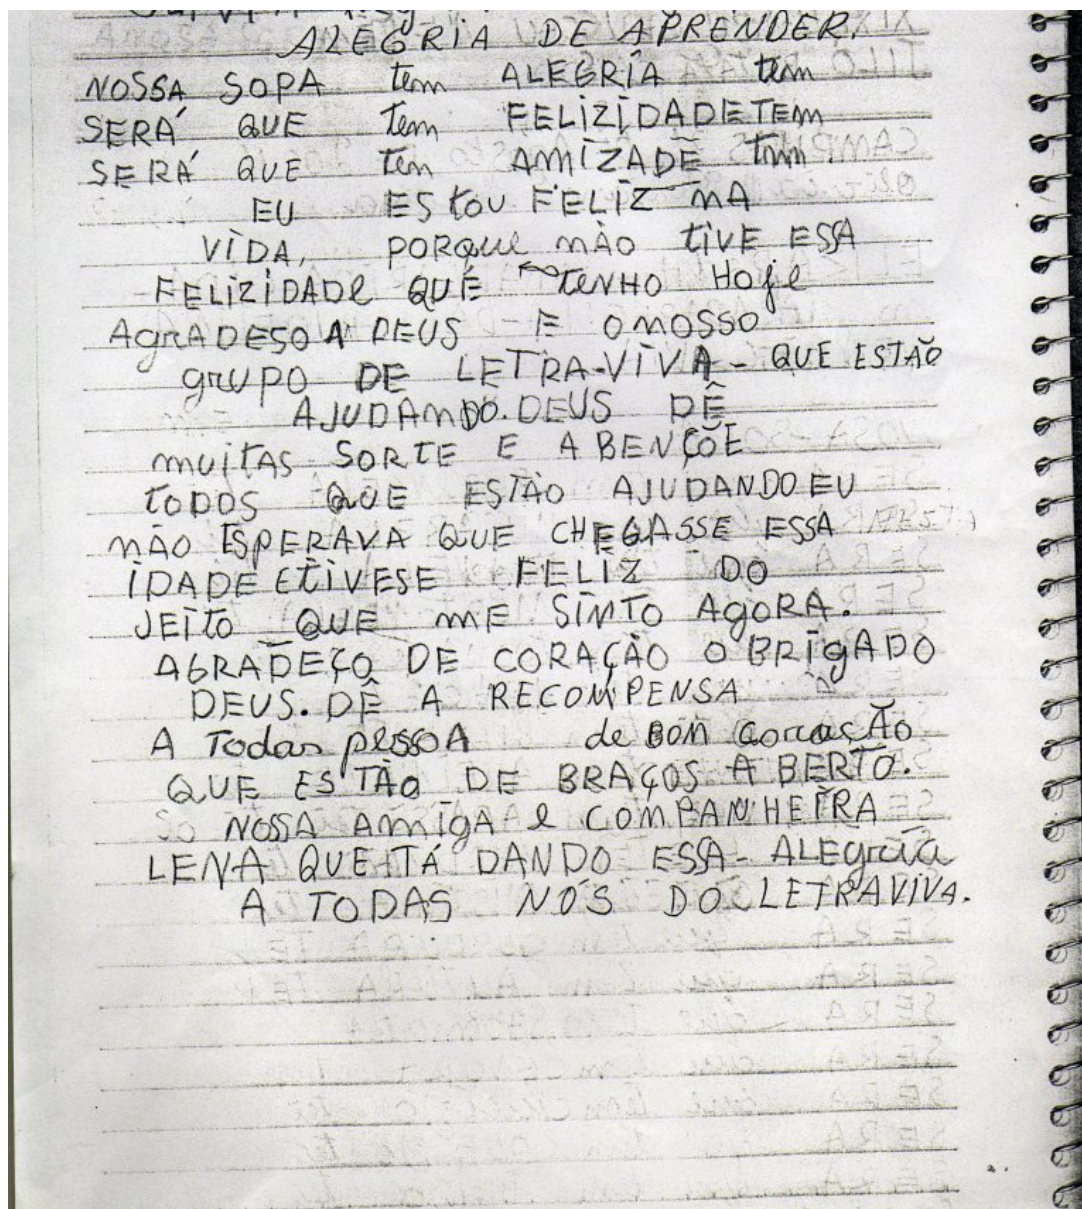 ALEGRIA DE APRENDER.
NOSSA SOPA tem ALEGRIA tem
SERÁ QUE tem FELIZIDADE TEM
SERÁ QUE tem AMIZADE tem.
EU ESTOU FELIZ NA
VIDA, PORQUE NÃO TIVE ESSA
FELIZIDADE QUE TENHO HOJE
AGRADESO A DEUS E O NOSSO
GRUPO DE LETRA-VIVA - QUE ESTÃO
AJUDANDO. DEUS DÊ
MUITAS SORTE E A BENÇÕE
TODOS QUE ESTÃO AJUDANDO EU
NÃO ESPERAVA QUE CHEGASSE ESSA
IDADE ETIVESE FELIZ DO
JEITO QUE ME SINTO AGORA.
AGRADEÇO DE CORAÇÃO O BRIGADO
DEUS. DÊ A RECOMPENSA
A Todas pessoA de BOM coração
QUE ESTÃO DE BRAÇOS A BERTO.
NOSSA AMIGA e COMPANHEIRA
LENA QUE TÁ DANDO ESSA - ALEgria
A TODAS NÓS DO LETRAVIVA.